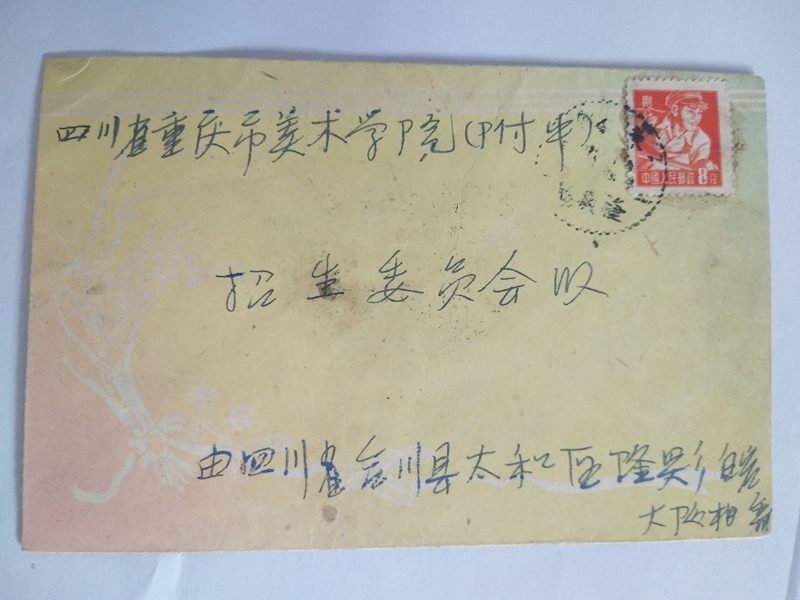 四川省重庆市美术学院(附中)
中國人民郵政 8分
招生委员会收
由四川省合川县太和区隆兴
大队相